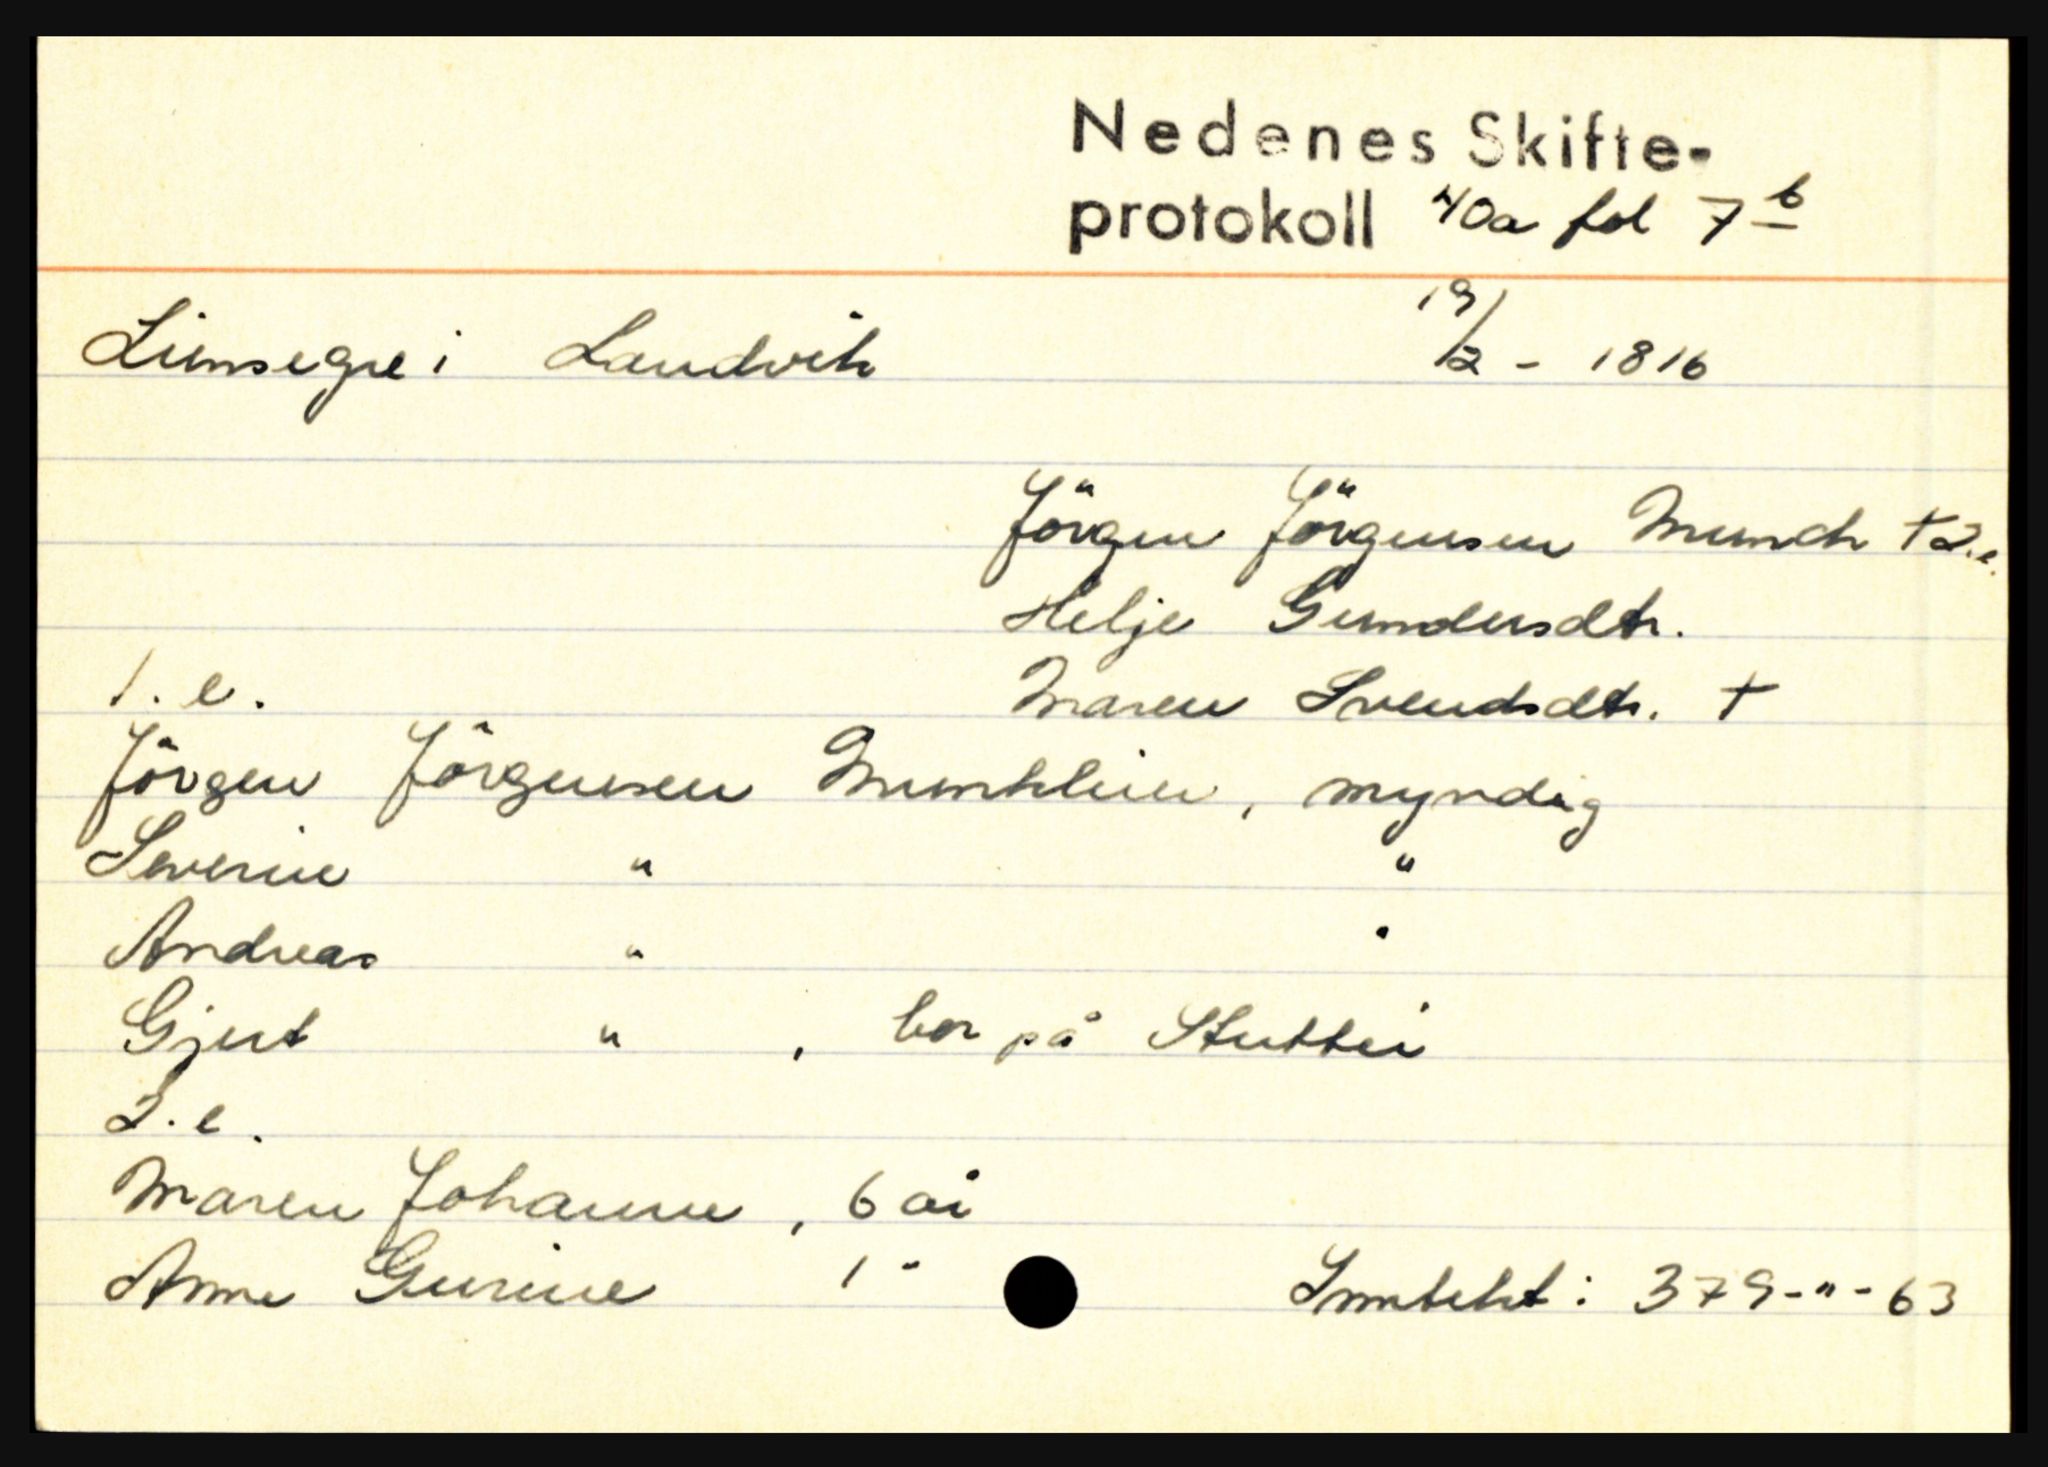 Nedenes Skifte-
protokoll 40a fol 7b
Limsegre i Landvik 19/2 - 1816
Jörgen Jörgensen Munch † 2.e.
Helje Gundersdtr.
1. e. Maren Svendsdtr. †
Jörgen Jörgensen Munkhlien, myndig
Severin " "
Andreas " "
Gjert " , bor på Stuttei
2. e.
Maren Johanne, 6 år
Anne Gurine 1 "
Inntekt: 379-"-63